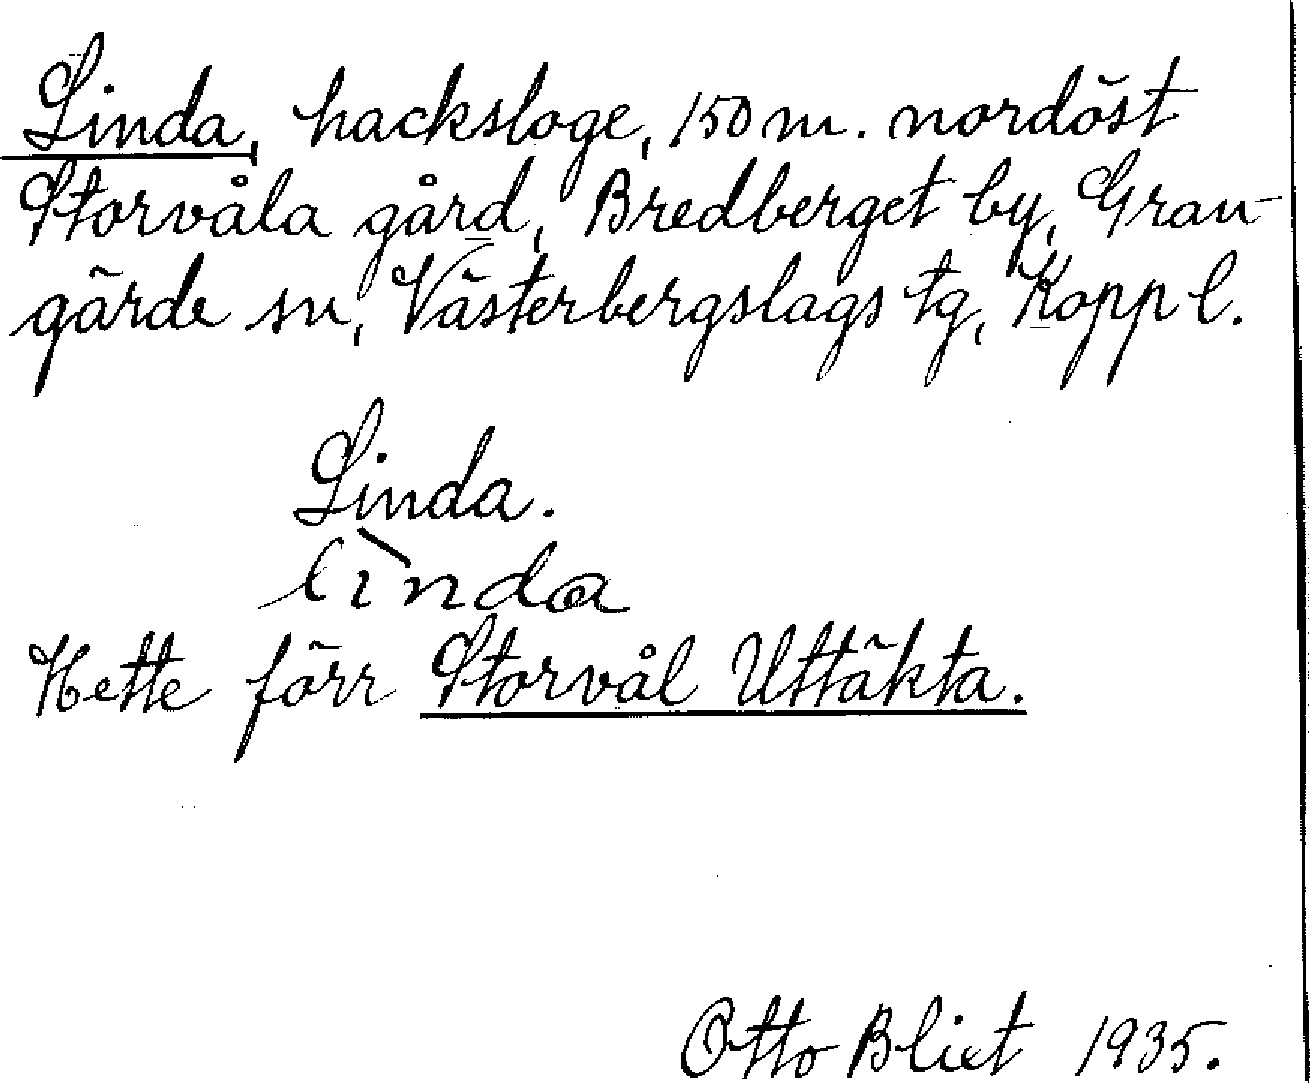 Linda, hacksloge, 150 m. nordöst
Storvåla gård, Bredberget by, Gran-
gärde sn, Västerbergslags tg, Kopp l.
Linda.
lìnda
Hette förr Storvål Uttäkta.
Otto Blixt 1935.